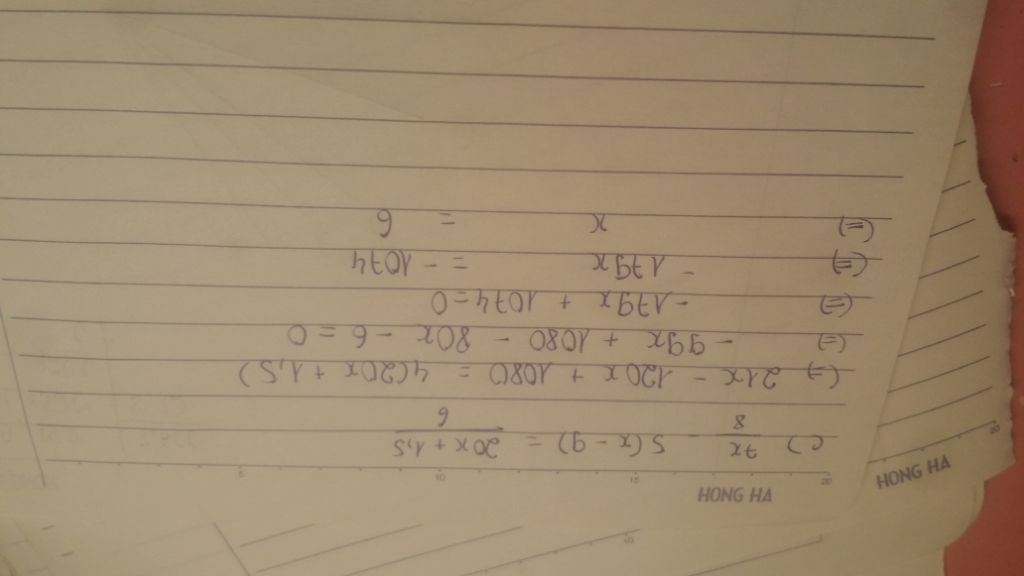 HONG HA
HONG HA
20
15
10
5
c) 7x/8 - 5(x - 9) = 20x + 1,5/6
(=) 21x - 120x + 1080 = 4(20x + 1,5)
(=) - 99x + 1080 - 80x - 6 = 0
(=) - 179x + 1074 = 0
(=) - 179x = - 1074
(=) x = 6